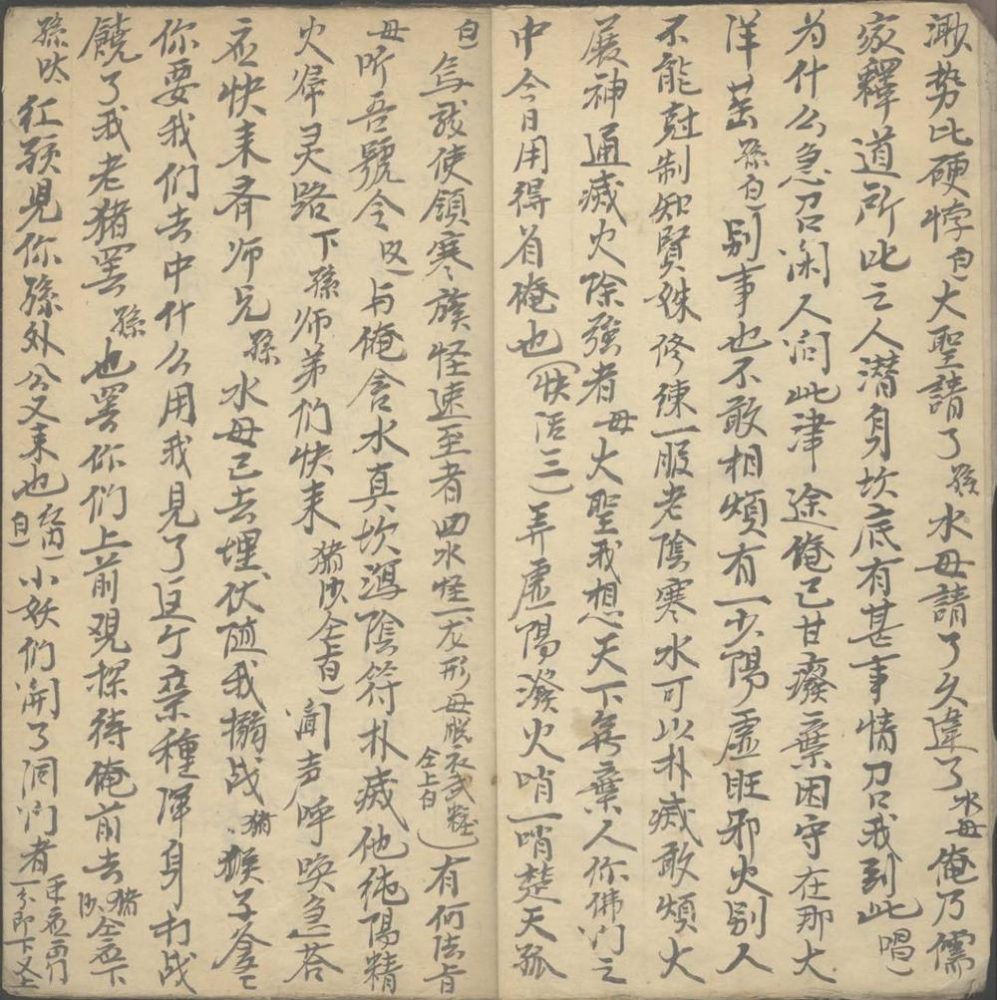 溂势比硬悖白大聖請了孫水母請了久違了水母俺乃儒
家釋道所此之人潛身坎底有甚事情刀召我到此唱
为什么急召闲人问此津途俺已甘癈棄困守在那大
洋 孫白别事也不敢相煩有一少陽虛旺邪火别人
不能尅制知賢妹修練一服老陰寒水可以朴滅敢煩大
展神通滅火除強者母大聖我想天下無棄人你佛门之
中今日用得着俺也快活三弄虛陽潑火哨一哨楚天孤
白 使領寒簇怪速至者四水怪一龙形母脫衣武粧仝上白有何法旨
母听吾號令 与俺含水真坎瀉陰符朴滅他純陽精
火犀灵路下孫师弟们快来猪沙仝上白闻声呼唤急答
应快来齐师兄孫水母已去埋伏随我搦战猪猴子
你要我们去中什么用我見了这个业種渾身打战
饒了我老猪罢孫也罢你们上前覌探待俺前去猪沙仝应下
孫呔红孩兒你孫外公又来也 白小妖们闹了洞门者 应 门 即下又上